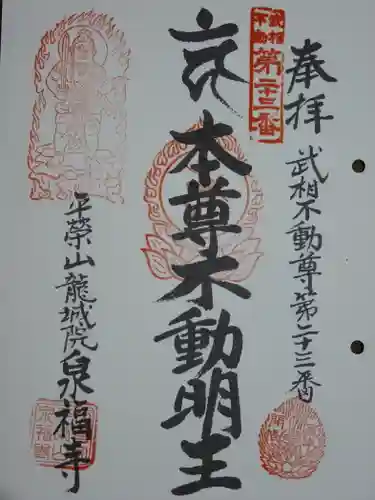 奉拝
武相不動尊第二十三番
武相
不動
第二十三番
本尊不動明王
平榮山龍城院泉福寺